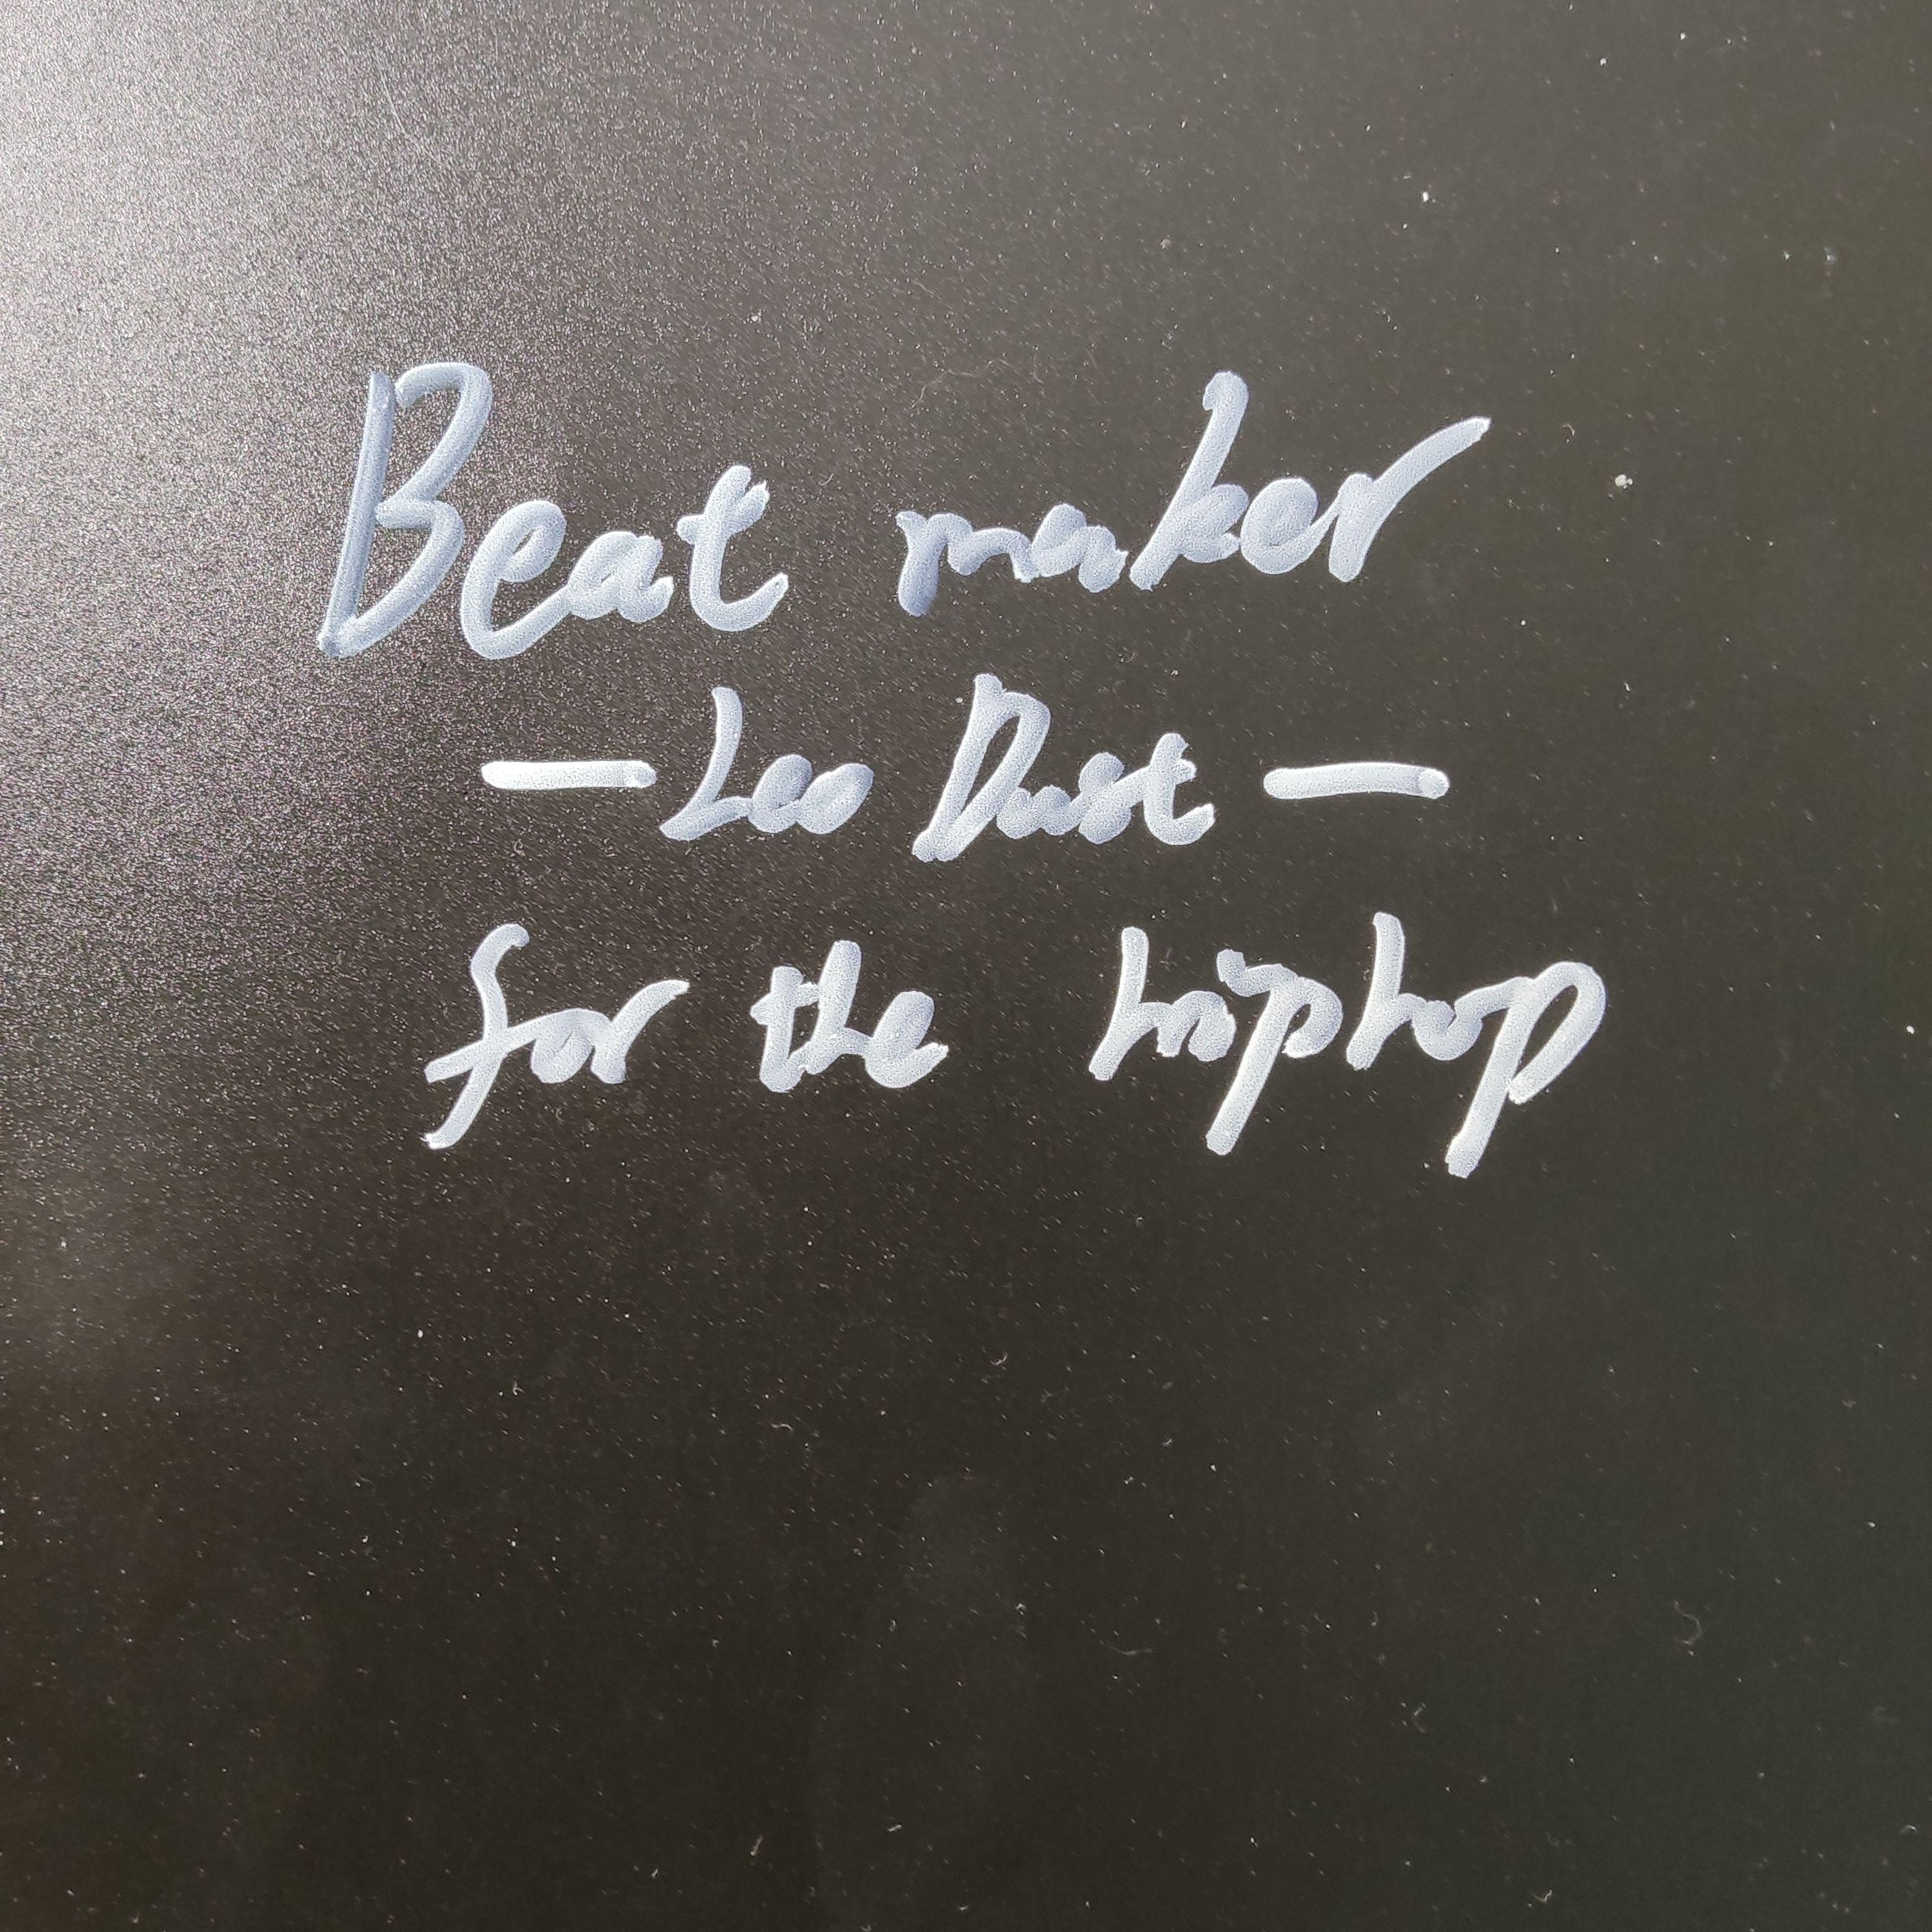 Beat maker
— Leo Dust —
for the hiphop